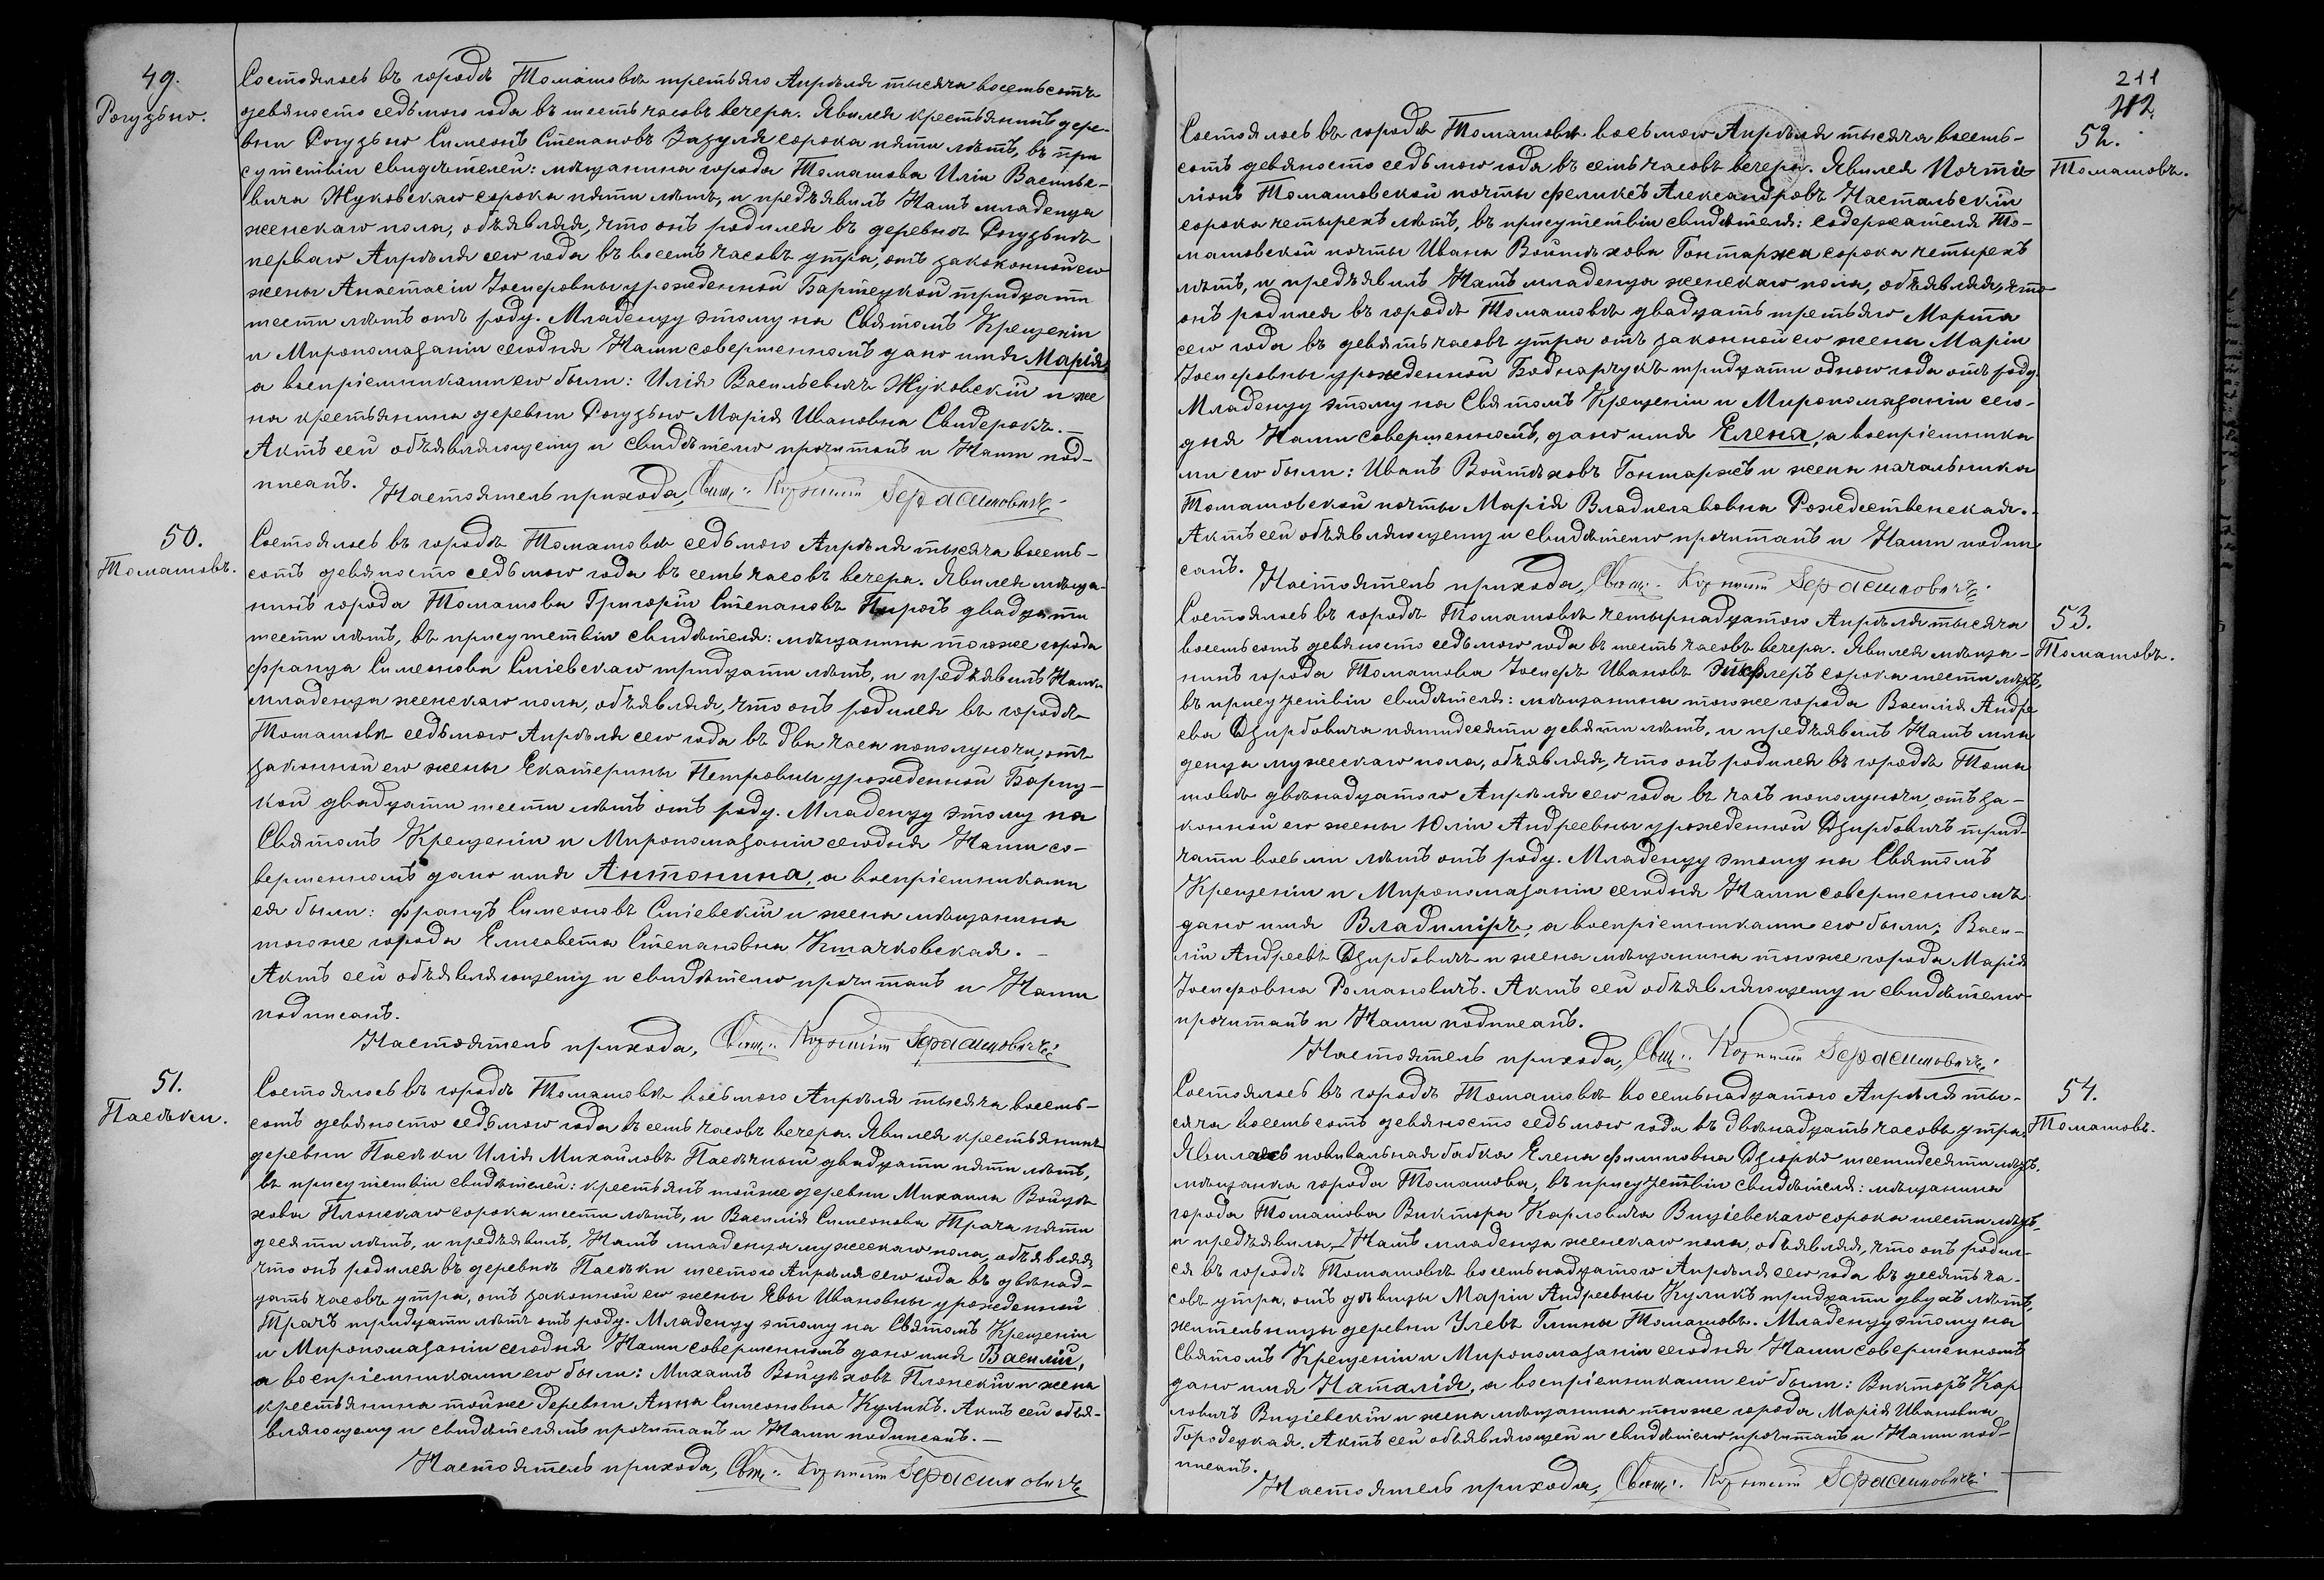 49.
Рогузьно.
Состоялось въ городѣ Томашовѣ третьяго Апрѣля тысяча восемьсотъ
девяносто седьмого года въ шесть часовъ вечера. Явился крестьянинъ дере-
вни Рогузьно Симеонъ Степановъ Зазуля сорока пяти лѣтъ, въ при
сутствіи свидѣтелей: мѣщанина города Томашова Иліи Василье-
вича Жуковскаго сорока пяти лѣтъ, и предъявилъ Намъ младенца
женскаго пола, объявляя, что онъ родился въ деревнѣ Рогузьнѣ
перваго Апрѣля сего года въ восемь часовъ утра, отъ законной его
жены Анастасіи Іосифовны урожденной тридцати
шести лѣтъ отъ роду. Младенцу этому на Святомъ Крещеніи
и Миропомазаніи сегодня Нами совершенномъ дано имя Марія,
а воспріемниками его были: Илія Васильевичъ Жуковскій и же
на крестьянина деревни Рогузьно Марія Ивановна Свидерокъ.—
Актъ сей объявляющему и свидѣтелю прочитанъ и Нами под-
писанъ. Настоятель прихода, Свящ: Корнилій Герасимовичъ
50.
Томашовъ.
Состоялось въ городѣ Томашовѣ седьмого Апрѣля тысяча восемь-
сотъ девяносто седьмого года въ семь часовъ вечера. Явился мѣща-
нинъ города Томашова Григорій Степановъ Пирогъ двадцати
шести лѣтъ, въ присутствіи свидѣтеля: мѣщанина тогоже города
Франца Симеонова тридцати лѣтъ, и предъявилъ Намъ
младенца женскаго пола, объявляя, что онъ родился въ городѣ
Томашовѣ седьмого Апрѣля сего года въ два часа пополуночи, отъ
законной его жены Екатерины Петровны урожденной Борщ-
кой двадцати шести лѣтъ отъ роду. Младенцу этому на
Святомъ Крещеніи и Миропомазаніи сегодня Нами со-
вершенномъ дано имя Антонина, а воспріемниками
ея были: Францъ Симеоновъ и жена мѣщанина
тогоже города Елисавета Степановна Кташковская.—
Актъ сей объявляющему и свидѣтелю прочитанъ и Нами
подписанъ.
Настоятель прихода, Свящ: Корнилій Герасимовичъ
51.
Пасѣки.
Состоялось въ городѣ Томашовѣ восьмого Апрѣля тысяча восемь-
сотъ девяносто седьмого года въ семь часовъ вечера. Явился крестьянинъ
деревни Пасѣки Илія Михайловъ Пасѣчный двадцати пяти лѣтъ,
въ присутствіи свидѣтелей: крестьянъ тойже деревни Михаила Войцѣ
хова Плонскаго сорока шести лѣтъ, и Василія Симеонова Трача пяти
десяти лѣтъ, и предъявилъ, Намъ младенца мужескаго пола, объявляя,
что онъ родился въ деревнѣ Пасѣки шестого Апрѣля сего года въ двѣнад-
цать часовъ утра, отъ законной его жены Евы Ивановны урожденной
Трачъ тридцати лѣтъ отъ роду. Младенцу этому на Святомъ Крещеніи
и Миропомазаніи сегодня Нами совершенномъ дано имя Василій,
а воспріемниками его были: Михаилъ Войцѣховъ Плонскій и жена
крестьянина тойже деревни Анна Симеоновна Куликъ. Актъ сей объя-
вляющему и свидѣтелямъ прочитанъ и Нами подписанъ.—
Настоятель прихода, Свящ: Корнилій Герасимовичъ
211
212.
52.
Томашовъ.
Состоялось въ городѣ Томашовѣ восьмого Апрѣля тысяча восемь-
сотъ девяносто седьмого года въ семь часовъ вечера. Явился Почтіл-
ліонъ Томашовской почты Феликсъ Александровъ Настальскій
сорока четырехъ лѣтъ, въ присутствіи свидѣтеля: содержателя То-
машовской почты Ивана Войтѣхова Гонтаржа сорока четырехъ
лѣтъ, и предъявилъ Намъ младенца женскаго пола, объявляя, что
онъ родился въ городѣ Томашовѣ двадцать третьяго Марта
сего года въ девять часовъ утра отъ законной его жены Маріи
Іосифовны урожденной Боднарчукъ тридцати одного года отъ роду.
Младенцу этому на Святомъ Крещеніи и Миропомазаніи сего-
дня Нами совершенномъ, дано имя Елена, а воспріемника
ми его были: Иванъ Войтѣховъ Гонтаржъ и жена начальника
Томашовской почты Марія Владиславовна Рождественская.—
Актъ сей объявляющему и свидѣтелю прочитанъ и Нами подпи
санъ. Настоятель прихода, Свящ: Корнилій Герасимовичъ
53.
Томашовъ.
Состоялось въ городѣ Томашовѣ четырнадцатого Апрѣля тысяча
восемьсотъ девяносто седьмого года въ шесть часовъ вечера. Явился мѣща-
нинъ города Томашова Іосифъ Ивановъ сорока шести лѣтъ,
въ присутствіи свидѣтеля: мѣщанина тогоже города Василія Андре
ева Дзирбовича пятидесяти девяти лѣтъ, и предъявилъ Намъ мла
денца мужескаго пола, объявляя, что онъ родился въ городѣ Тома
шовѣ двѣнадцатого Апрѣля сего года въ часъ пополуночи, отъ за-
конной его жены Юліи Андреевны урожденной Дзирбовичъ трид-
цати восьми лѣтъ отъ роду. Младенцу этому на Святомъ
Крещеніи и Миропомазаніи сегодня Нами совершенномъ
дано имя Владиміръ, а воспріемниками его были: Васи-
лій Андреевъ Дзирбовичъ и жена мѣщанина тогоже города Марія
Іосифовна Романовичъ. Актъ сей объявляющему и свидѣтелю
прочитанъ и Нами подписанъ.
Настоятель прихода, Свящ: Корнилій Герасимовичъ
54.
Томашовъ.
Состоялось въ городѣ Томашовѣ восемьнадцатого Апрѣля ты-
сяча восемьсотъ девяносто седьмого года въ двѣнадцать часовъ утра.
Явилась повивальная бабка Елена Филиповна Дзюрко шестидесяти лѣтъ,
мѣщанка города Томашова, въ присутствіи свидѣтеля: мѣщанина
города Томашова Виктора Карловича сорока шести лѣтъ,
и предъявила, Намъ младенца женскаго пола, объявляя, что онъ родил-
ся въ городѣ Томашовѣ восемьнадцатого Апрѣля сего года въ десять ча-
совъ утра, отъ дѣвицы Маріи Андреевны Куликъ тридцати двухъ лѣтъ,
жительницы деревни Улевъ Гмины Томашовъ. Младенцу этому на
Святомъ Крещеніи и Миропомазаніи сегодня Нами совершенномъ
дано имя Наталія, а воспріемниками его были: Викторъ Кар
ловичъ и жена мѣщанина тогоже города Марія Ивановна
Городецкая. Актъ сей объявляющей и свидѣтелю прочитанъ и Нами под-
писанъ.
Настоятель прихода, Свящ: Корнилій Герасимовичъ